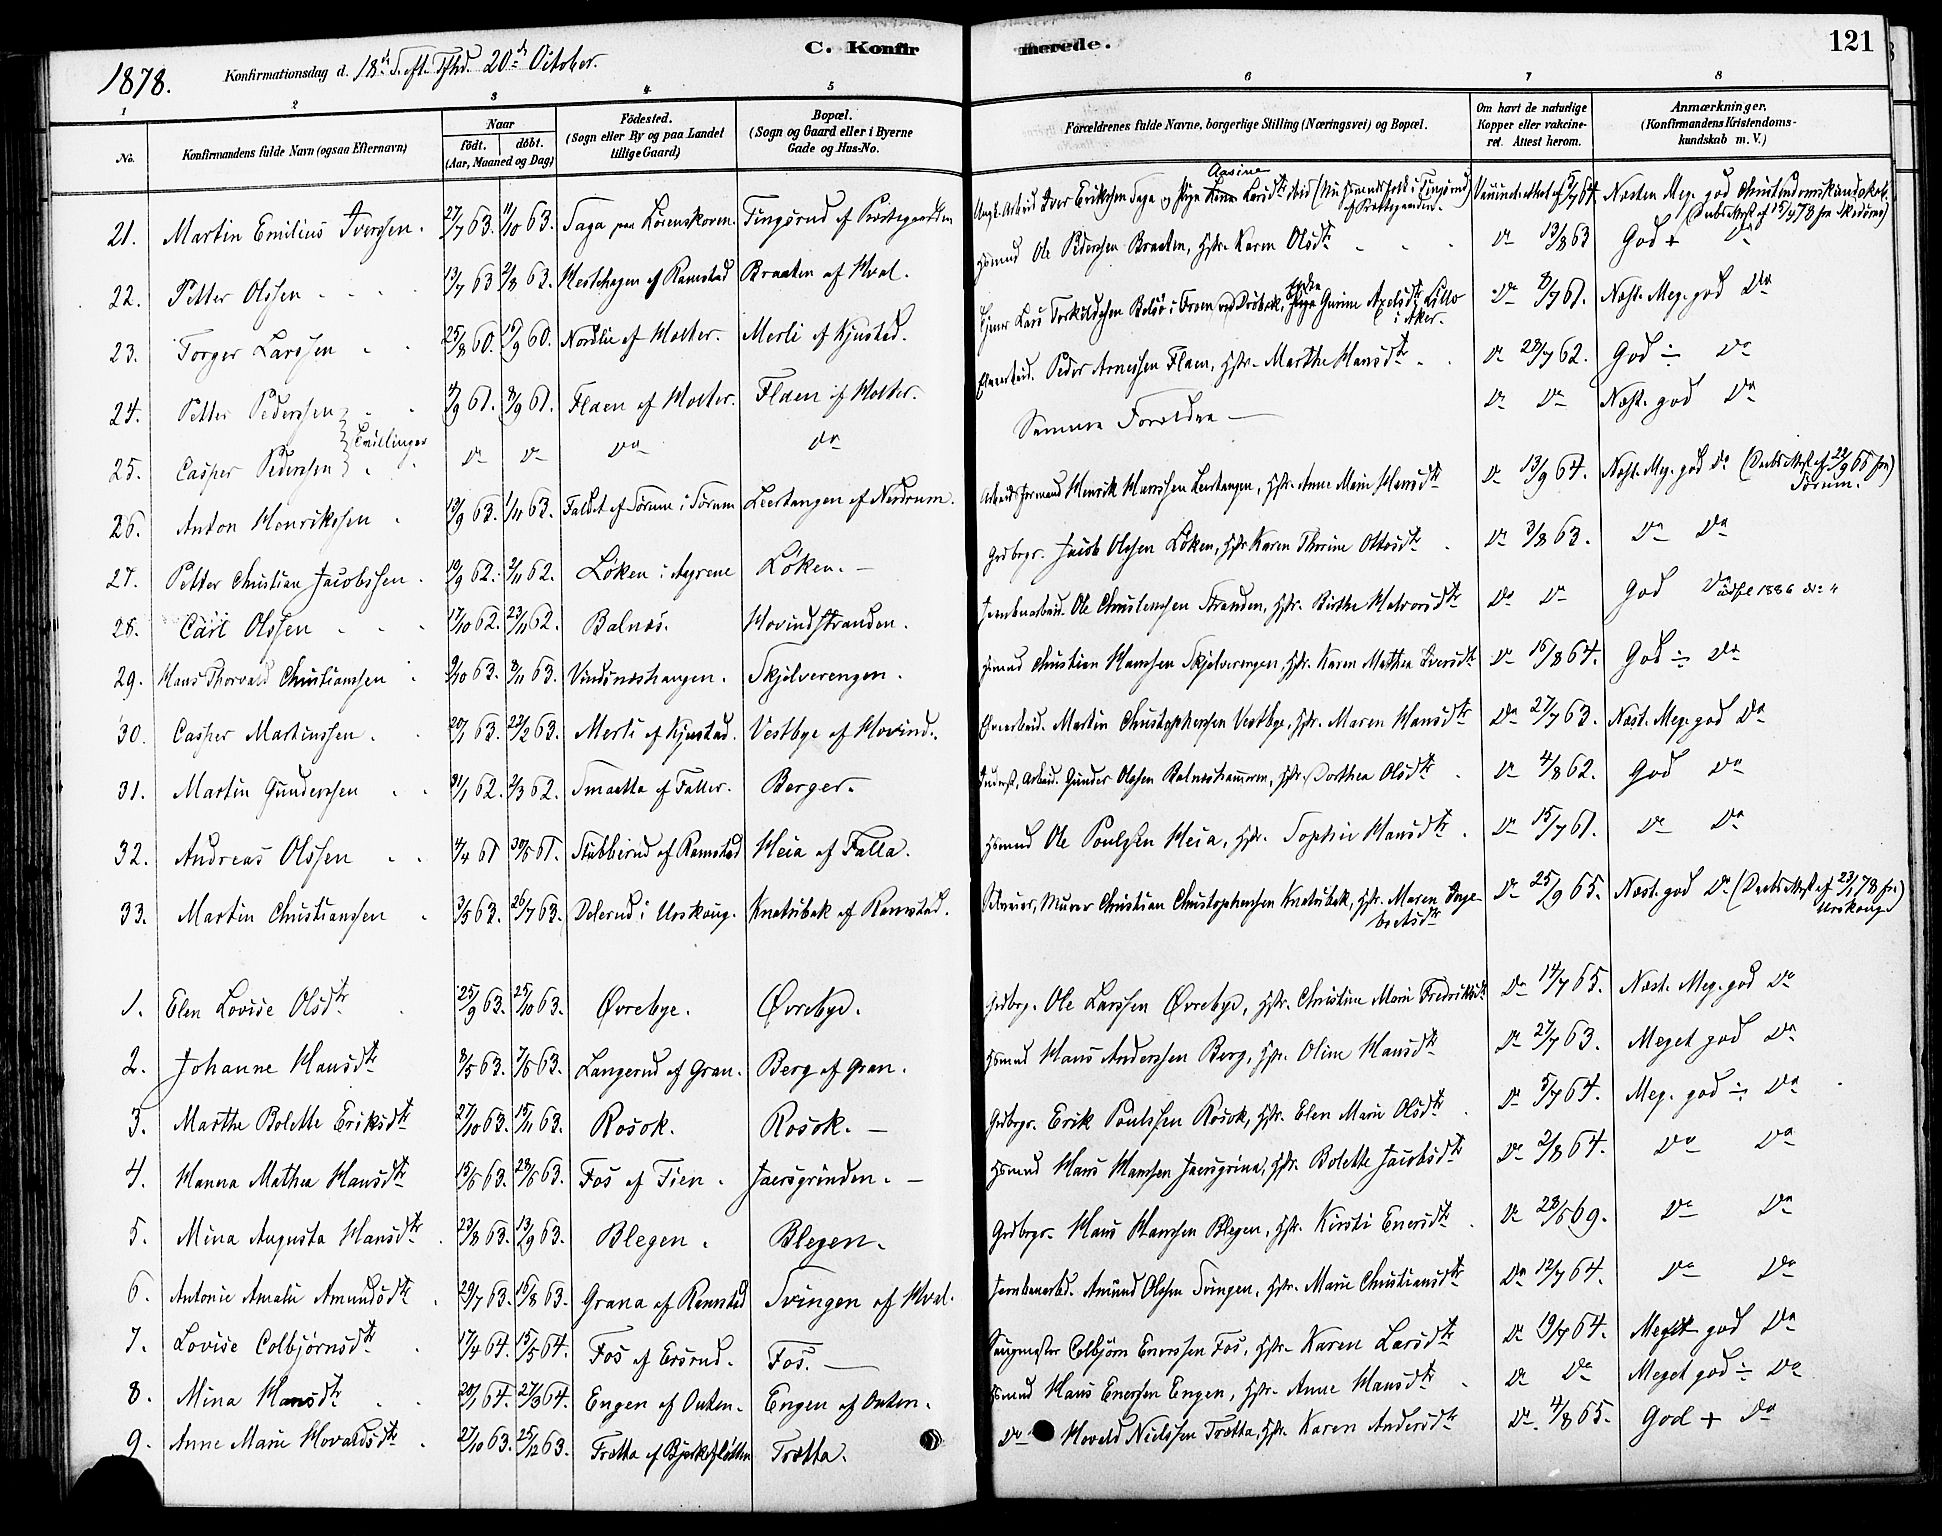 C. Konfirmerede.
121
1878. Konfirmationsdag d. 18de S. eft. Tfhd. 20de October.
1 2 3 4 5 6 7 8
No.
Konfirmandens fulde Navn (ogsaa Efternavn)
Naar
født. døbt.
(Aar, Maaned og Dag)
Fødested.
(Sogn eller By og paa Landet
tillige Gaard)
Bopæl.
(Sogn og Gaard eller i Byerne
Gade og Hus-No.
Forældrenes fulde Navne, borgerlige Stilling (Næringsvei) og Bopæl.
Om havt de naturlige
Kopper eller vakcine-
ret. Attest herom.
Anmærkninger.
(Konfirmandens Kristendoms-
kundskab m. V.)
21. Martin Emilius Iverssen. 27/7 63. 11/10 63. Saga paa Lørenskoven. Tingsrud af Præstegaarden Iver Erikssen Saga og Pige Aasine Larsdtr Næsten Meg. god Christendomskundskab
22. Petter Olssen 13/7 63 2/8 63. Hestehagen af Ramstad Braaten af Hval. Hsmnd Ole Pederssen Braaten, Hstr. Karen Olsdtr Do 13/8 63 God + Do
23. Torger Larssen 25/8 60. 15/9 60. Nordlie af Holter. Merli af Kjustad. Tjener Lars Torkildssen Gurine Axelsdtr Lillo i Aker. Do 8/7 61. Næst. Meg. god Do
24. Petter Pederssen 4/9 61. 8/9 61. Flaen af Holter. Flaen af Holter. Peder Arnessen Flaen, Hstr. Marthe Hansdtr Do 28/7 62. God ÷ Do
Tvillinger
25. Casper Pederssen Do Do Do Do Samme Forældre Do Do Næst. god Do
26. Anton Henrikssen 13/9 63. 1/11 63. Faldet af Sørum i Sørum Leertangen af Nordrum. Henrik Hanssen Leertangen, Hstr. Anne Marie Hansdtr Do 13/9 64. Næst. Meg. god Do Sørum.
27. Petter Christian Jacobssen. 19/9 62. 2/11 62. Løken i Høyrene Løken. Grdbrgr. Jacob Olssen Løken, Hstr. Karen Thorine Ottosdtr Do 3/8 63. Do Do
28. Carl Olssen 17/10 62. 23/11 62. Balnes. Hovindstranden. Ole Christenssen Stranden, Hstr. Birthe Halvorsdtr Do Do God Do
29. Hans Thorvald Christianssen 9/10 63. 8/11 63. Vindsnæshaugen. Skjølverengen. Hsmnd Christian Hanssen Skjølverengen, Hstr. Karen Mathea Iversdtr Do 15/8 64. God ÷ Do
30. Casper Martinssen. 20/1 63. 22/2 63. Merli af Kjustad. Vestbye af Hovind. Martin Christopherssen Vestbye, Hstr. Maren Hansdtr Do 27/7 63. Næst. Meg. god Do
31. Martin Gunderssen 31/1 62. 2/3 62. Smaetta af Faller. Berger. Gunder Olssen Balneshammeren, Hstr. Dorthea Olsdtr Do 4/8 62. God Do
32. Andreas Olssen 4/4 61 30/6 61. Stubberud af Ramstad Heia af Falla. Hsmnd Ole Poulssen Heia, Hstr. Sophie Hansdtr Do 15/7 61. Do Do
33. Martin Christianssen 3/5 63. 26/7 63. Delerud i Urskoug. Knatribak af Ramstad. Murer Christian Christophersen Knatribak, Hstr. Maren Ingebretsdtr Do 25/9 65. Næst. god Do Urskoug
1. Elen Lovise Olsdtr 25/9 63. 25/10 63. Øvrebye. Øvrebye. Grdbrgr. Ole Larssen Øvrebye, Hstr. Christine Marie Fredriksdtr Do 14/7 65. Næst. Meg. god Do
2. Johanne Hansdtr 8/5 63. 7/6 63. Langerud af Gran. Berg af Gran. Hsmnd Hans Anderssen Berg, Hstr. Oline Hansdtr Do 27/7 63. Meget god Do
3. Marthe Bolette Eriksdtr 27/10 63. 15/11 63. Rosok. Rosok. Grdbrgr. Erik Poulssen Rosok, Hstr. Elen Marie Olsdtr Do 5/7 64. Meg. god ÷ Do
4. Hanna Mathea Hansdtr 15/5 63. 28/6 63. Fos af Tien. Jaersgrinden. Hsmnd Hans Hanssen Jaersgrind, Hstr. Bolette Jacobsdtr Do 2/8 64. Do Do
5. Mina Augusta Hansdtr. 23/8 63. 13/9 63. Blegen. Blegen. Grdbrgr. Hans Hanssen Blegen, Hstr. Kirsti Enersdtr Do 28/6 69. Do Do
6. Antonie Amalie Amundsdtr. 29/7 63. 16/8 63. Grana af Ramstad Svingen af Hval. Amund Olssen Svingen, Hstr. Marie Christiansdtr Do 12/7 64. Do Do
7. Lovise Colbjørnsdtr 17/4 64. 15/5 64. Fos af Ersrud. Fos. Saugmester Colbjørn Enerssen Fos, Hstr. Karen Larsdtr Do 19/7 64. Meget god Do
8. Mina Hansdtr 20/1 64. 27/3 64. Engen af Outen. Engen af Outen. Hsmnd Hans Enerssen Engen, Hstr. Anne Hansdtr Do Do Meget god ÷ Do
9. Anne Marie Hovaldsdtr 27/10 63. 25/12 63. Trætta af Bjerkesletten Trætta. Do Hovald Nielssen Trætta, Hstr. Karen Andersdtr Do 4/8 65. God + Do